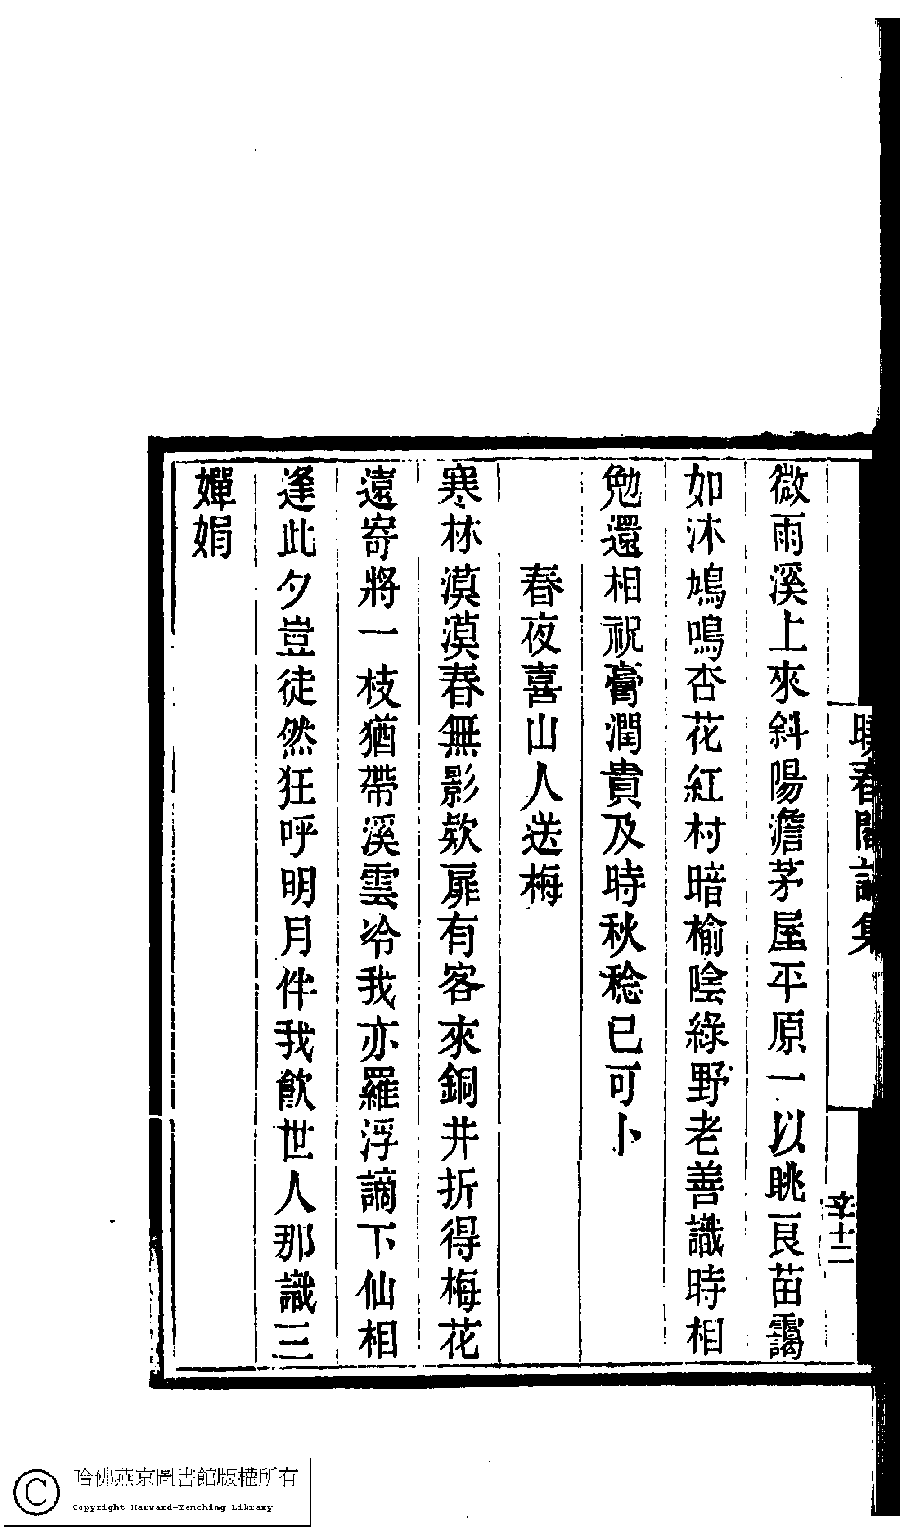 春閣詩集
辛十二
微雨溪上來斜陽澹茅屋平原一以眺良苗靄
如沐鳩鳴杏花紅村暗榆陰綠野老善識時相
勉還相祝膏潤貴及時秋稔已可卜
春夜喜山人送梅
寒林漠漠春無影欸扉有客來銅井折得梅花
遠寄將一枝猶帶溪雲冷我亦羅浮謫下仙相
逢此夕豈徒然狂呼明月伴我飲世人那識三
嬋娟
哈佛燕京圖書館版權所有
Copyright Harvard-Yenching Library